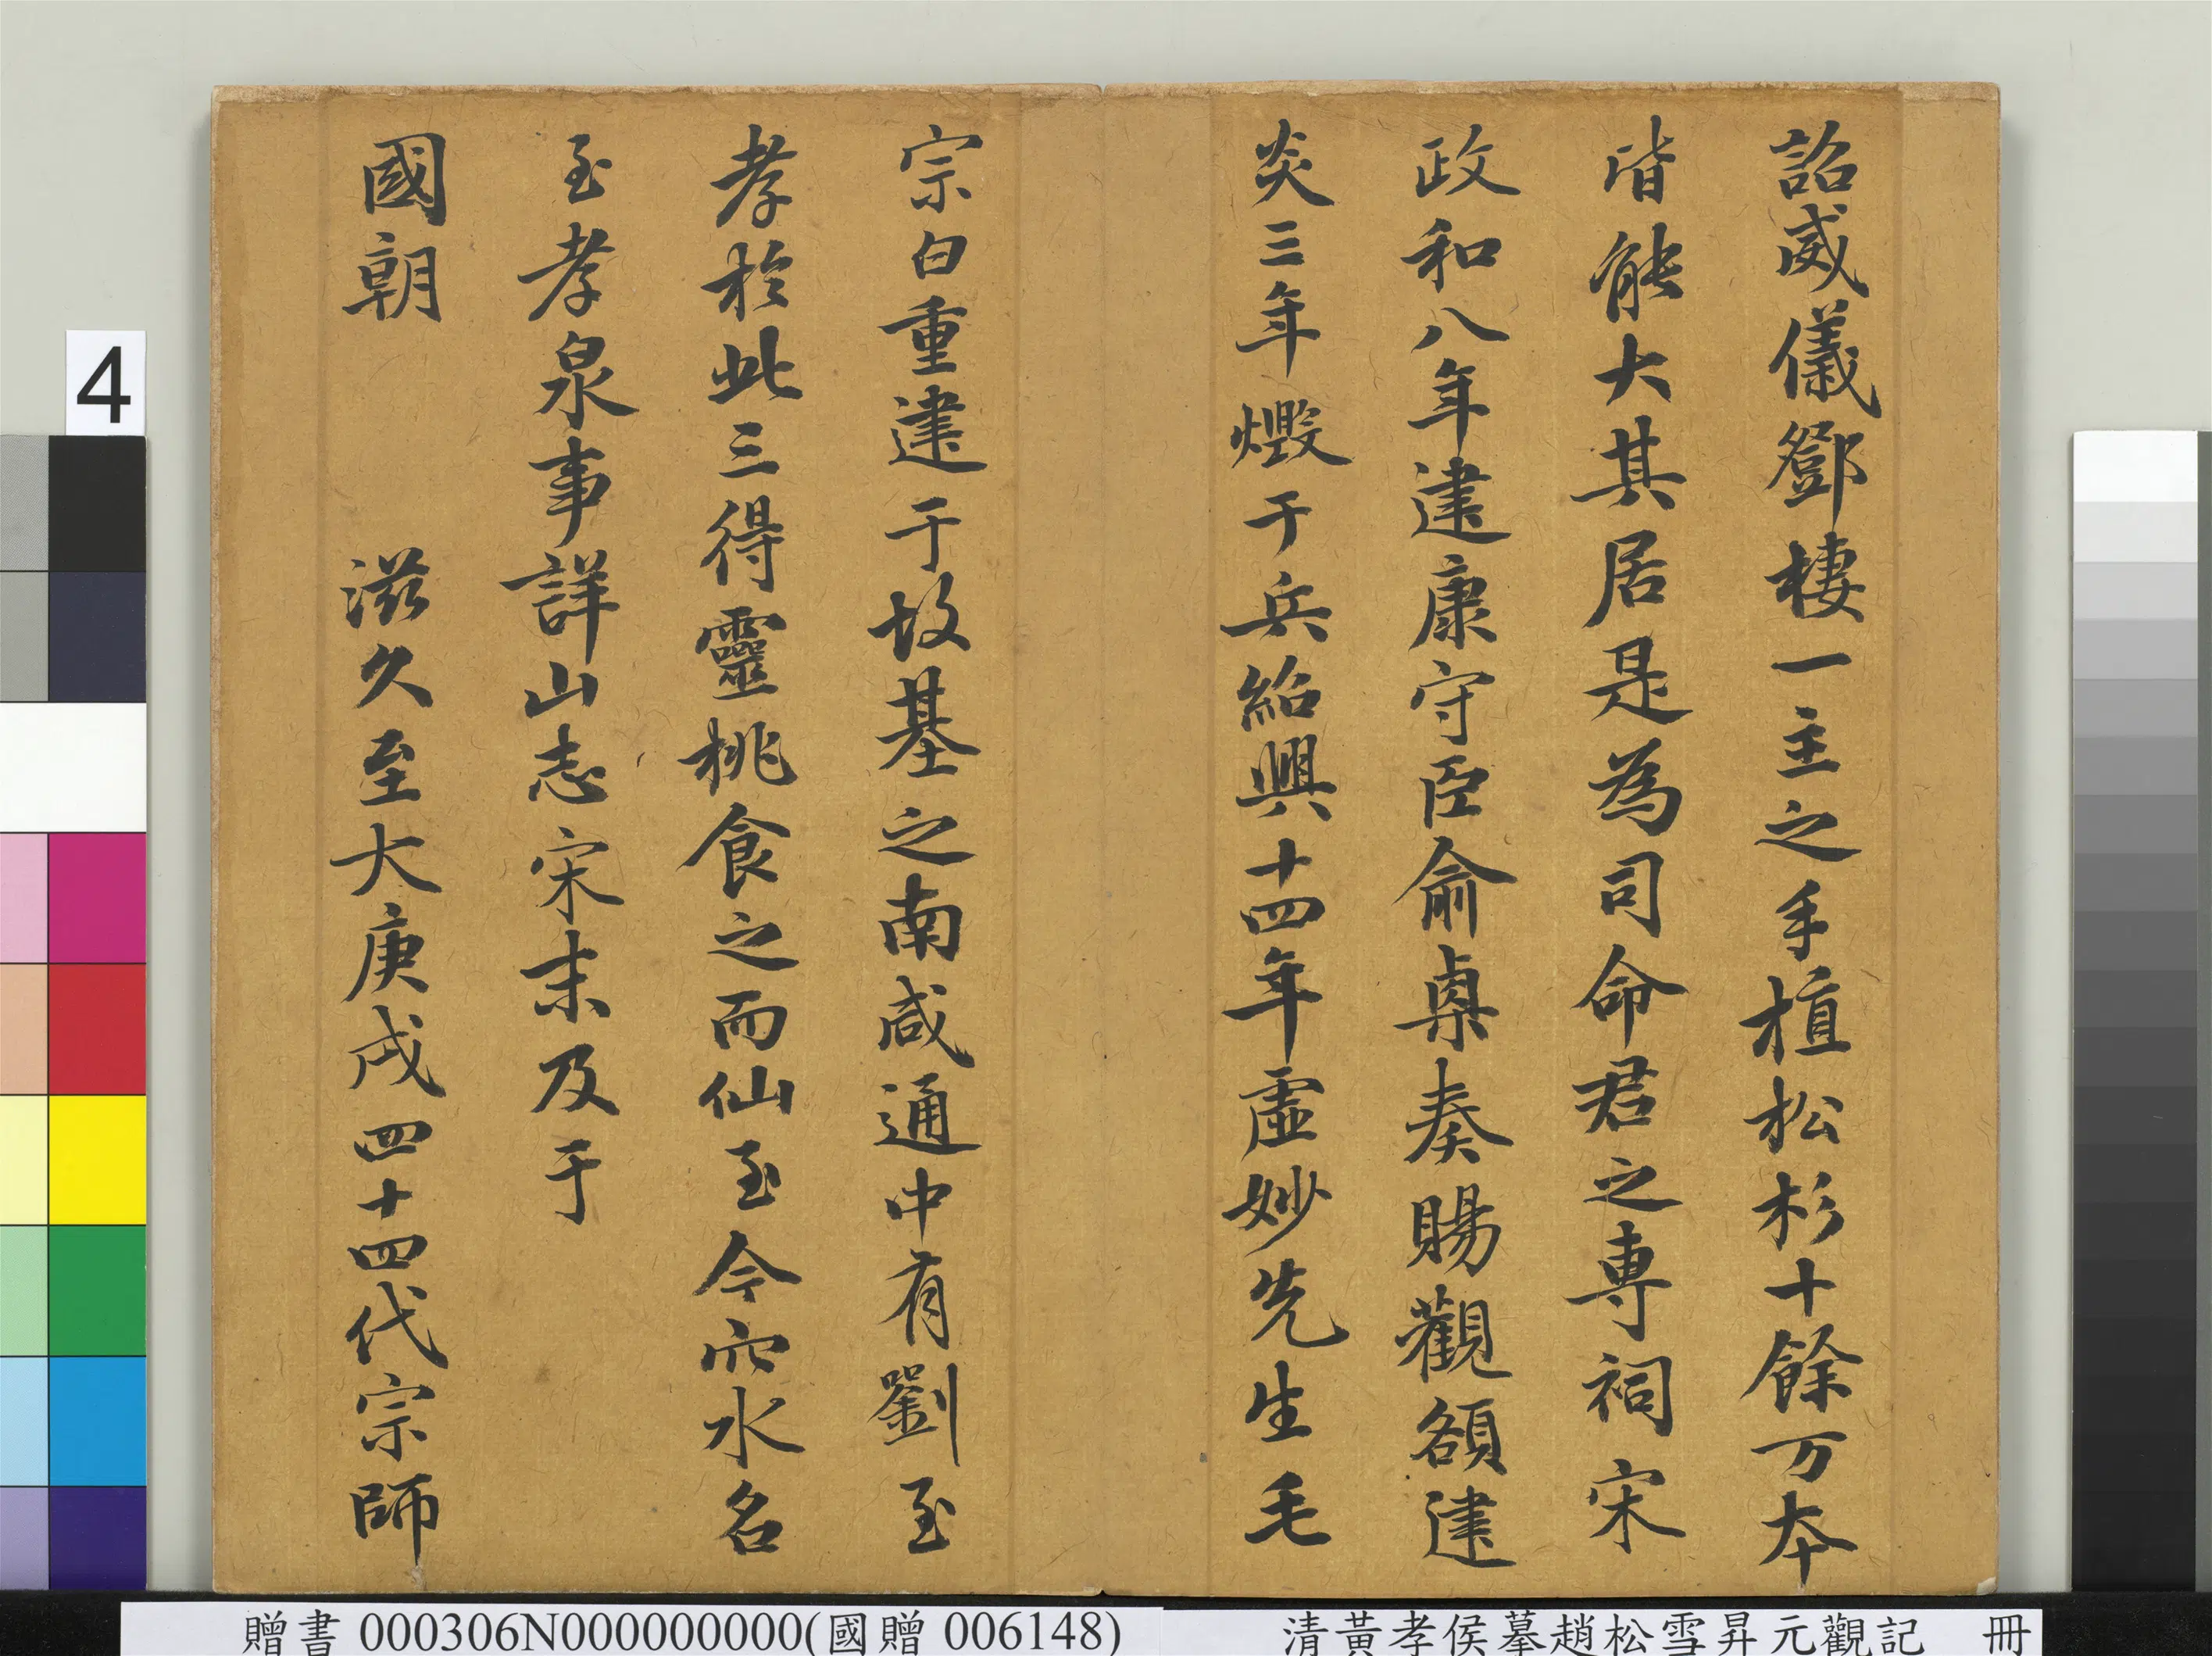 詔威儀鄧棲一主之手植松杉十餘万本
皆能大其居是為司命君之專祠宋
政和八年建康守臣俞㮚奏賜觀額建
炎三年燬于兵紹興十四年虛妙先生毛
宗白重建于故基之南咸通中有劉至
孝於此三得靈桃食之而仙至今穴水名
至孝泉事詳山志宋末及于
國朝 滋久至大庚戌四十四代宗師
4
贈書 000306N000000000(國贈 006148)
清黃孝侯摹趙松雪昇元觀記 冊